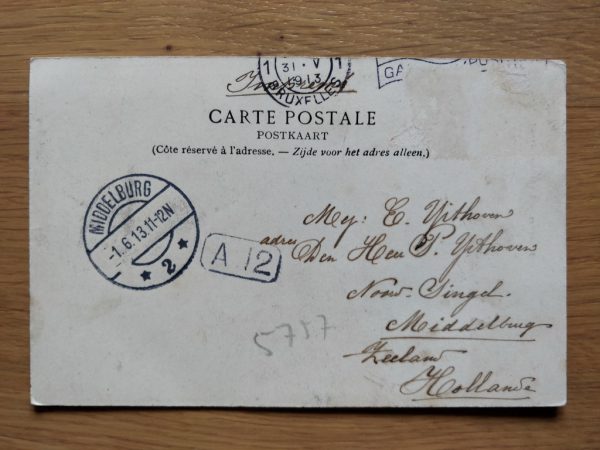 1 31·V 1
1913
BRUXELLES
GA
Imprimé
CARTE POSTALE
POSTKAART
(Côte réservé à l'adresse. — Zijde voor het adres alleen.)
MIDDELBURG
-1.6.13.11-12N
2
A 12
Mej: E. Ypthoven
adres
Den Heer P. Ypthoven
Noow-Singel.
Middelburg
Zeeland
Hollande
5757